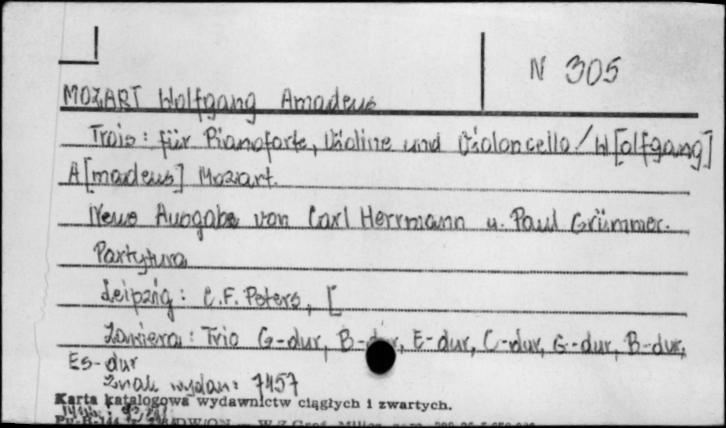 N 305
MOZART Wolfgang Amadeus
Trois: für Pianoforte, Violine und Violoncello / W[olfgang]
A[madeus] Mozart.
Neue Ausgabe von Carl Herrmann u. Paul Grümmer.
Partytura
Leipzig: C.F. Peters, [
Zawiera: Trio G-dur, B-dur, E-dur, C-dur, G-dur, B-dur,
Es-dur
Znak wydaw: 7457
Karta katalogowa wydawnictw ciągłych i zwartych.